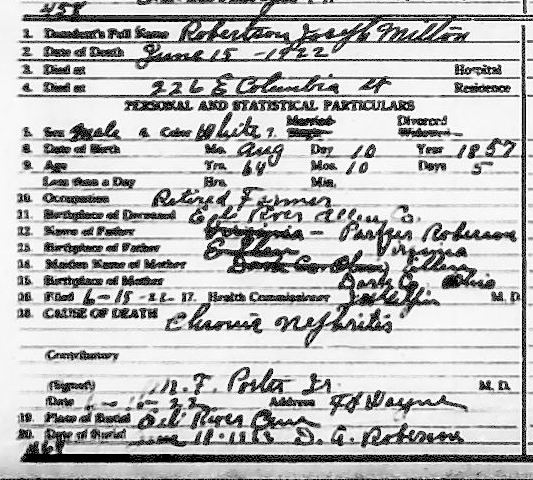 458
1. Decedent's Full Name Robertson Joseph Milton
2. Date of Death June 15 - 1922
3. Died at Hospital
4. Died at 226 E Columbia st Residence
PERSONAL AND STATISTICAL PARTICULARS
5. Sex Male 6. Color White 7. Married Single Divorced Widowed
8. Date of Birth Mo. Aug Day 10 Year 1857
9. Age Yrs. 64 Mos. 10 Days 5
Less than a Day Hrs. Min.
10. Occupation Retired Farmer
11. Birthplace of Deceased Eel River Allen Co.
12. Name of Father Virginia - Parker Roberson
13. Birthplace of Father Virginia
14. Maiden Name of Mother
15. Birthplace of Mother Dark Co. Ohio
16. Filed 6-15-22- 17. Health Commissioner M. D.
18. CAUSE OF DEATH Chronic Nephritis
Contributory
(Signed) N. F. Porter Jr. M. D.
Date 6-16-22 Address Ft Wayne
19. Place of Burial Eel River Cem
20. Date of Burial D. A. Roberson